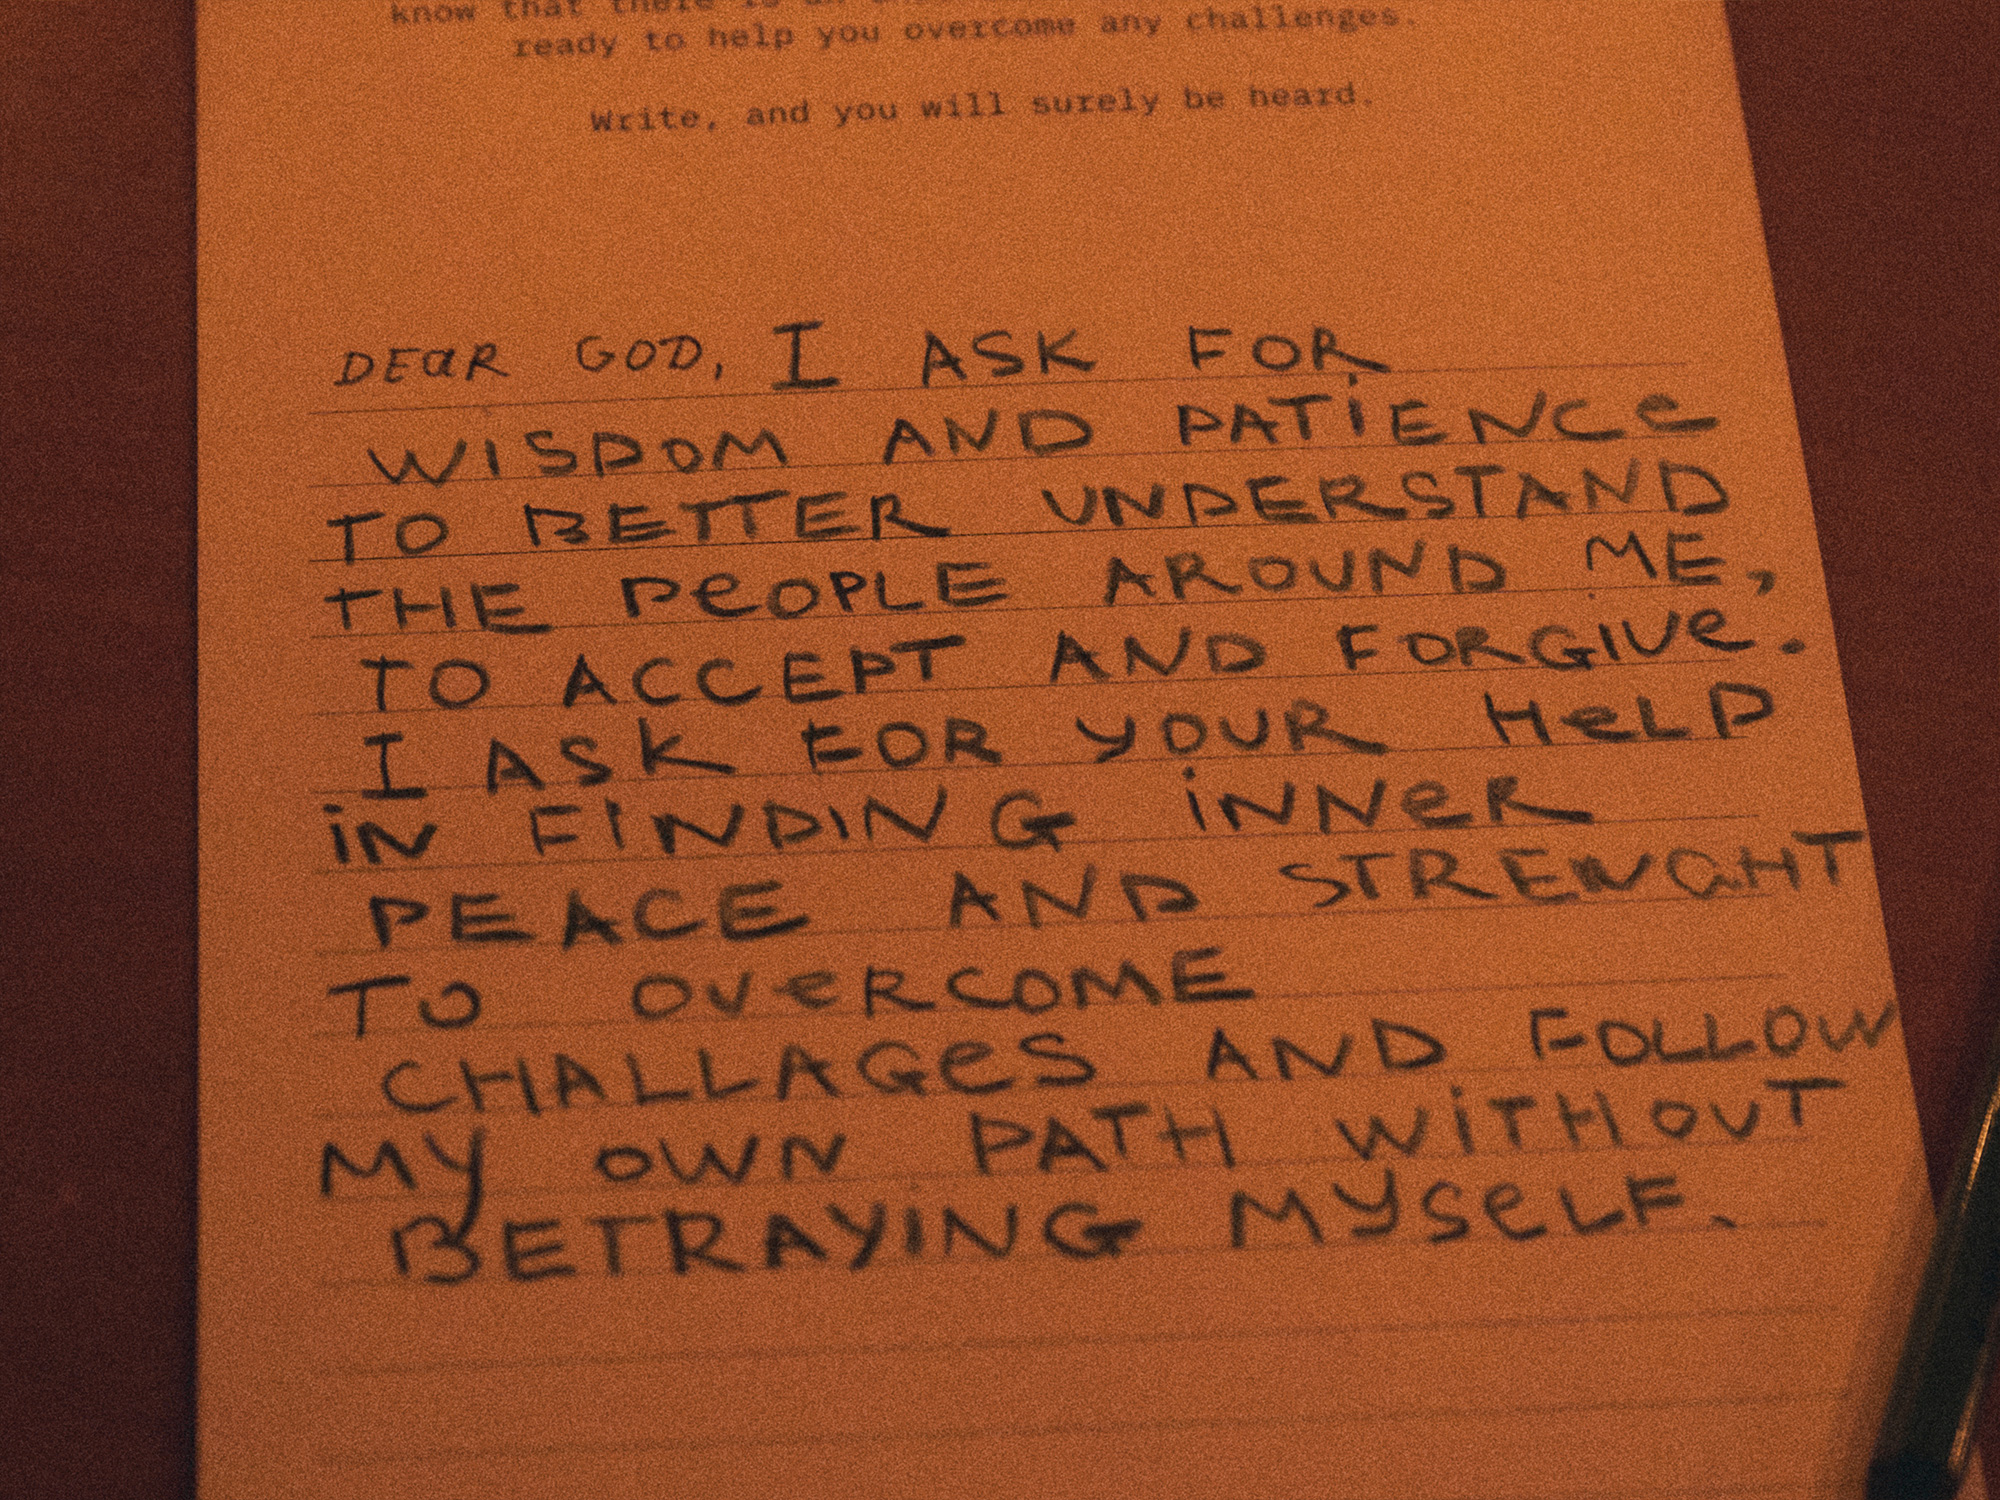 know that there is an
ready to help you overcome any challenges.
Write, and you will surely be heard.
DEaR GOD, I ASK FOR
WISDOM AND PATiENCe
TO BETTER UNDERSTAND
THE PeOPLE AROUND ME,
TO ACCEPT AND FORGIVe.
I ASK FOR YOUR HeLP
iN FINDING iNNeR
PEACE AND STRENGHT
TO OVeRCOME
CHALLAGeS AND FOLLOW
MY OWN PATH WiTHOUT
BETRAYiNG MYSeLF.